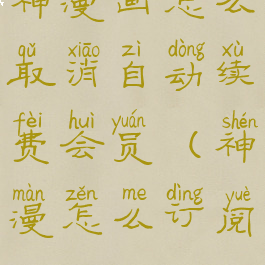 神漫画怎么
qǔ xiāo zì dòng xù
取消自动续
fèi huì yuán shén
费会员（神
màn zěn me dìng yuè
漫怎么订阅